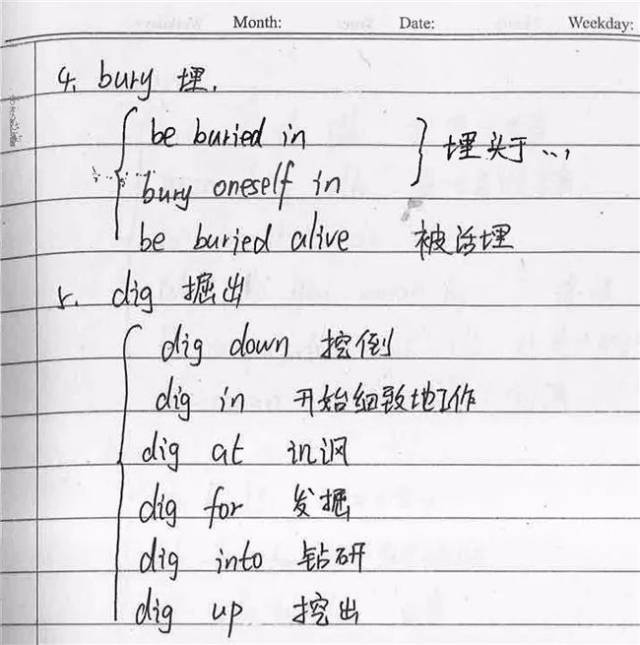 Month: Date: Weekday:
4. bury 埋.
be buried in
bury oneself in
埋头于...
be buried alive 被活埋
5. dig 掘出
dig down 挖倒
dig in 开始细致地工作
dig at 讥讽
dig for 发掘
dig into 钻研
dig up 挖出